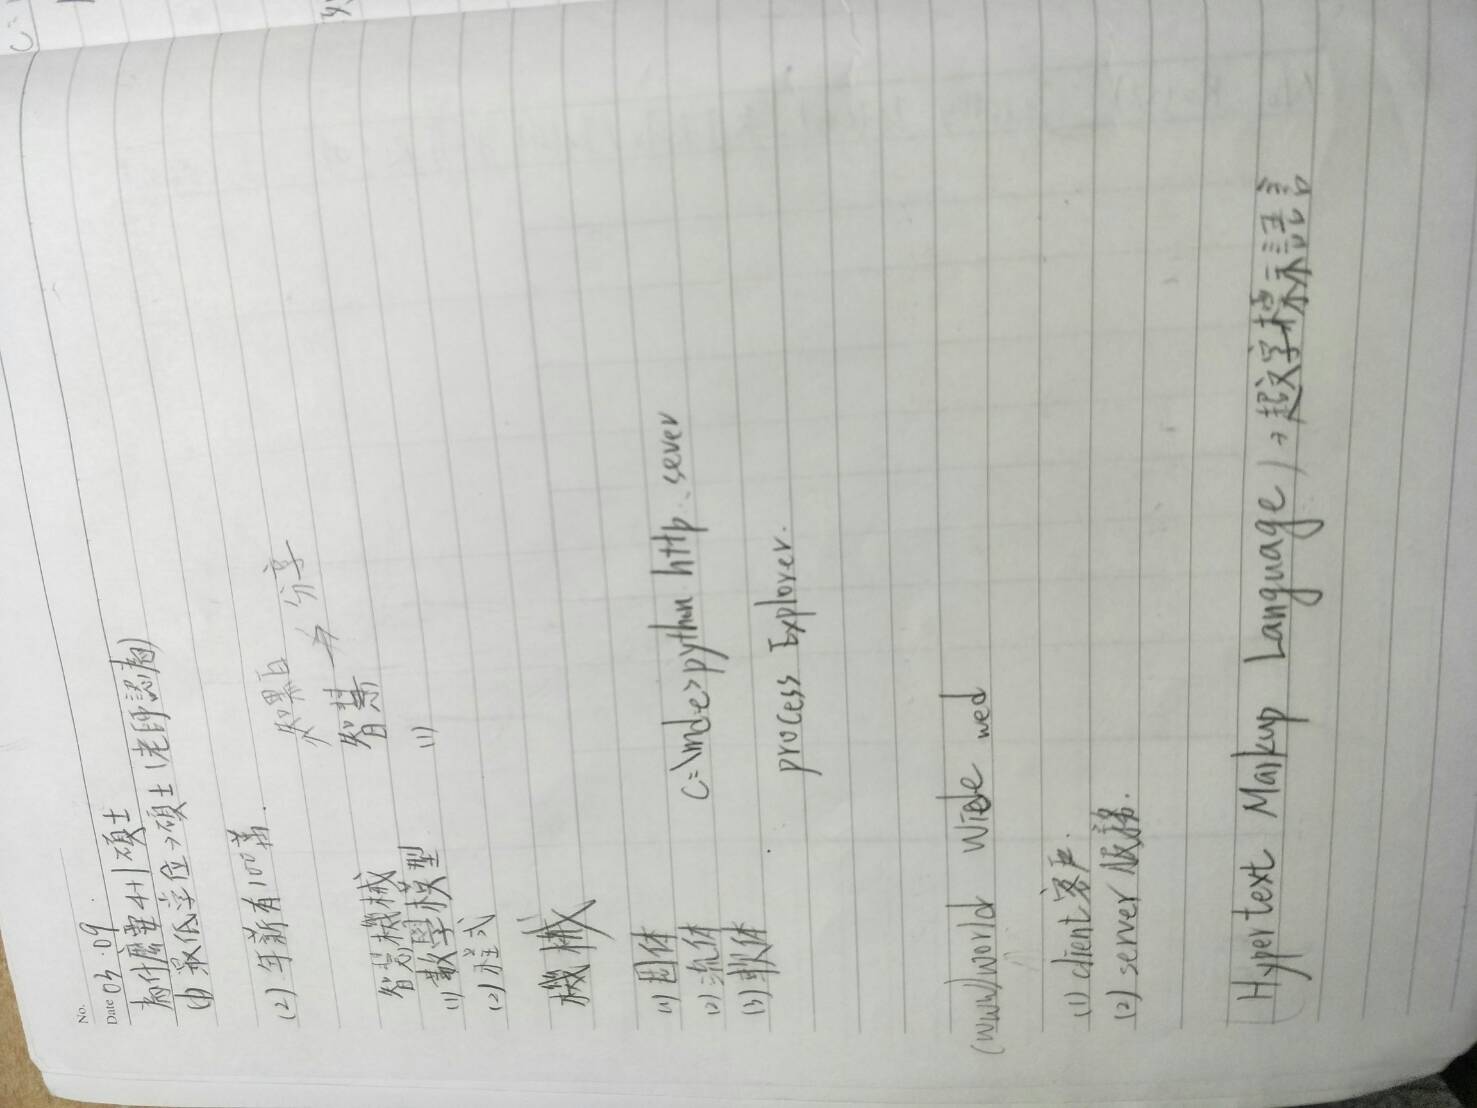 No.
Date 03.09.
為什麼要4+1碩士
(1) 最低學位→碩士(老師認為)
(2) 年薪有100萬.
知 分享
智慧
智慧機械 (1)
(1) 數學模型
(2) 程式
機械
(1) 固体
(2) 流体 C:\mde>python http.sever
(3) 軟体 process Explorer.
(www/world Wide wed
(1) client 客戶.
(2) server 服務.
Hypertext Markup Language)→超文字標示語言